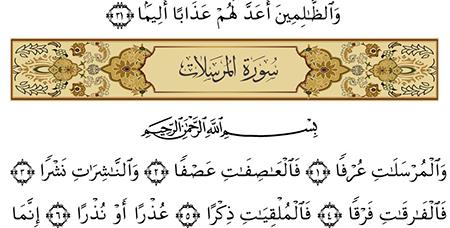 وَٱلظَّٰلِمِينَ أَعَدَّ لَهُمْ عَذَابًا أَلِيمًا ﴿٣١﴾
سُورَةُ الْمُرْسَلَات
بِسْمِ اللَّهِ الرَّحْمَٰنِ الرَّحِيمِ
وَٱلْمُرْسَلَٰتِ عُرْفًا ﴿١﴾ فَٱلْعَٰصِفَٰتِ عَصْفًا ﴿٢﴾ وَٱلنَّٰشِرَٰتِ نَشْرًا ﴿٣﴾
فَٱلْفَٰرِقَٰتِ فَرْقًا ﴿٤﴾ فَٱلْمُلْقِيَٰتِ ذِكْرًا ﴿٥﴾ عُذْرًا أَوْ نُذْرًا ﴿٦﴾ إِنَّمَا